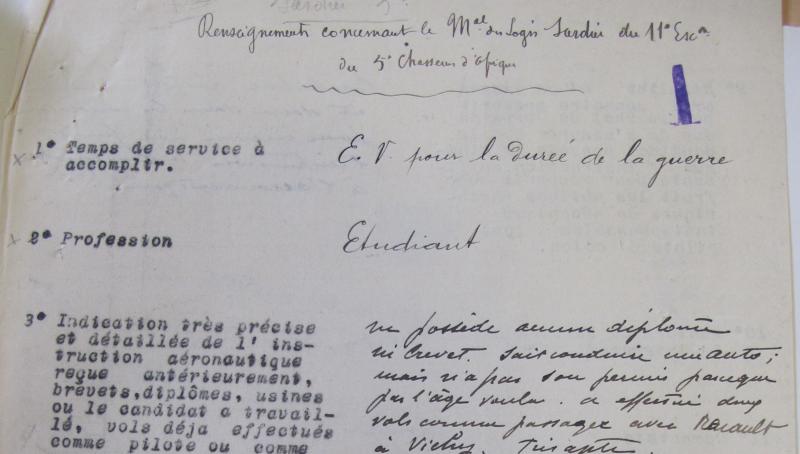 Renseignements concernant le Mal des Logis Jardin du 11e Escon
du 5e Chasseurs d'Afrique
1° Temps de service à
accomplir.
E. V. pour la durée de la guerre
2° Profession
Etudiant
3° Indication très précise
et détaillée de l' ins-
truction aéronautique
reçue antérieurement,
brevets,diplômes, usines
ou le candidat a travail-
lé, vols déja effectués
comme pilote ou comme
ne possède aucun diplome
ni brevet. Sait conduire une auto;
mais n'a pas son permis parceque
pas l'âge voulu. a effectué deux
vols comme passager avec Renault
à Vichy.